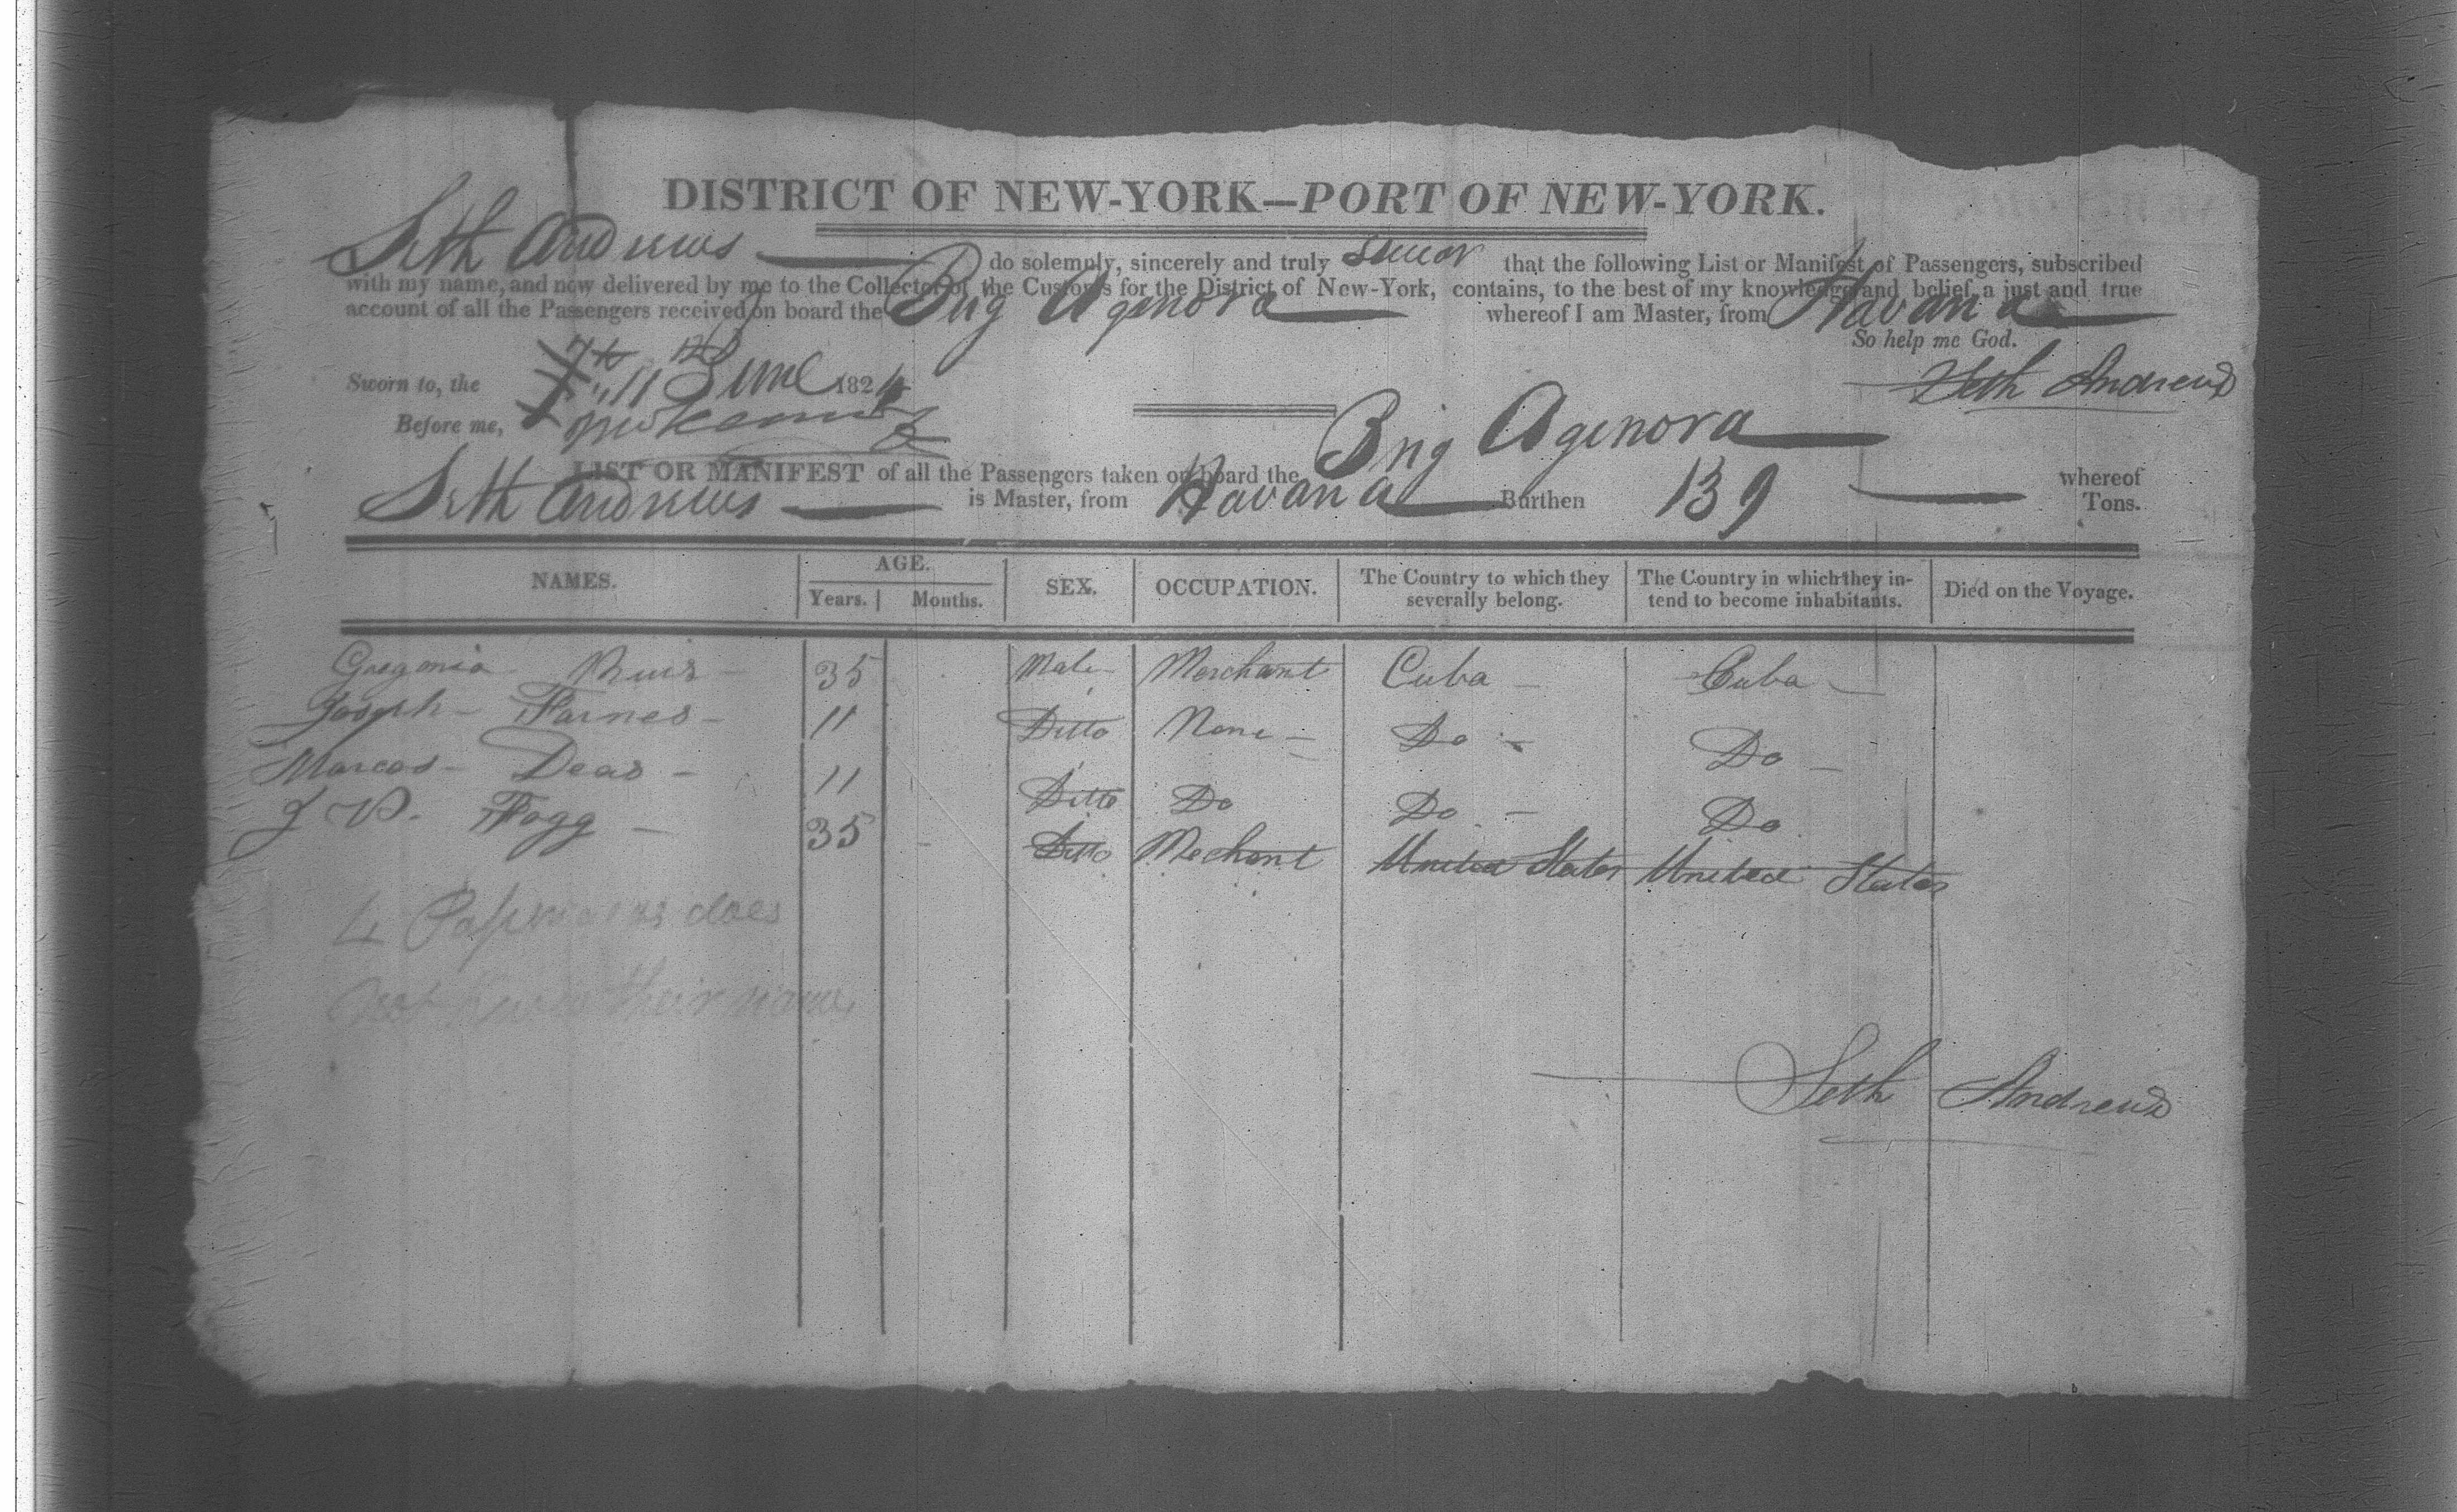 DISTRICT OF NEW-YORK—PORT OF NEW-YORK.
Seth Andrews do solemnly, sincerely and truly swear that the following List or Manifest of Passengers, subscribed
with my name, and now delivered by me to the Collector of the Customs for the District of New-York, contains, to the best of my knowledge and belief, a just and true
account of all the Passengers received on board the Brig Agenora whereof I am Master, from Havana
So help me God.
Sworn to, the 11 June 1824 Seth Andrews
Before me,
Brig Agenora
LIST OR MANIFEST of all the Passengers taken on board the whereof
Seth Andrews is Master, from Havana Burthen 139 Tons.
NAMES. AGE. SEX. OCCUPATION. The Country to which they severally belong. The Country in which they intend to become inhabitants. Died on the Voyage.
Years. Months.
35 Male Merchant Cuba Cuba
Joseph Farnes 11 Ditto None Do Do
Marcos Deas 11 Ditto Do Do Do
J V. Fogg 35 Ditto Mechant United States United States
4 Passengers does
not know their names
Seth Andrews